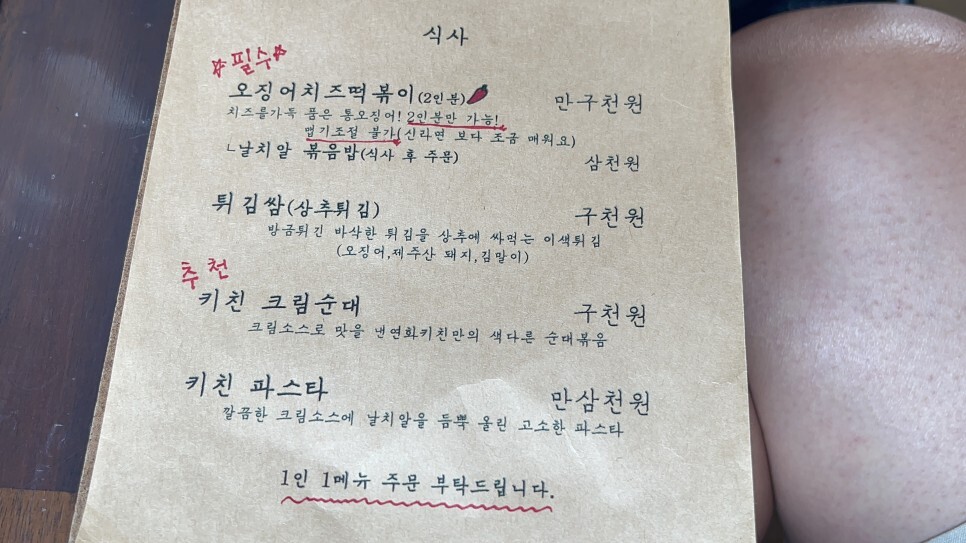 식사
☆필수☆
오징어치즈떡볶이(2인분) 만구천원
치즈를가득 품은 통오징어! 2인분만 가능!
맵기조절 불가(신라면 보다 조금 매워요)
ㄴ날치알 볶음밥(식사 후 주문) 삼천원
튀김쌈(상추튀김) 구천원
방금튀긴 바삭한 튀김을 상추에 싸먹는 이색튀김
(오징어,제주산 돼지,김말이)
추천
키친 크림순대 구천원
크림소스로 맛을 낸연화키친만의 색다른 순대볶음
키친 파스타 만삼천원
깔끔한 크림소스에 날치알을 듬뿍 올린 고소한 파스타
1인 1메뉴 주문 부탁드립니다.